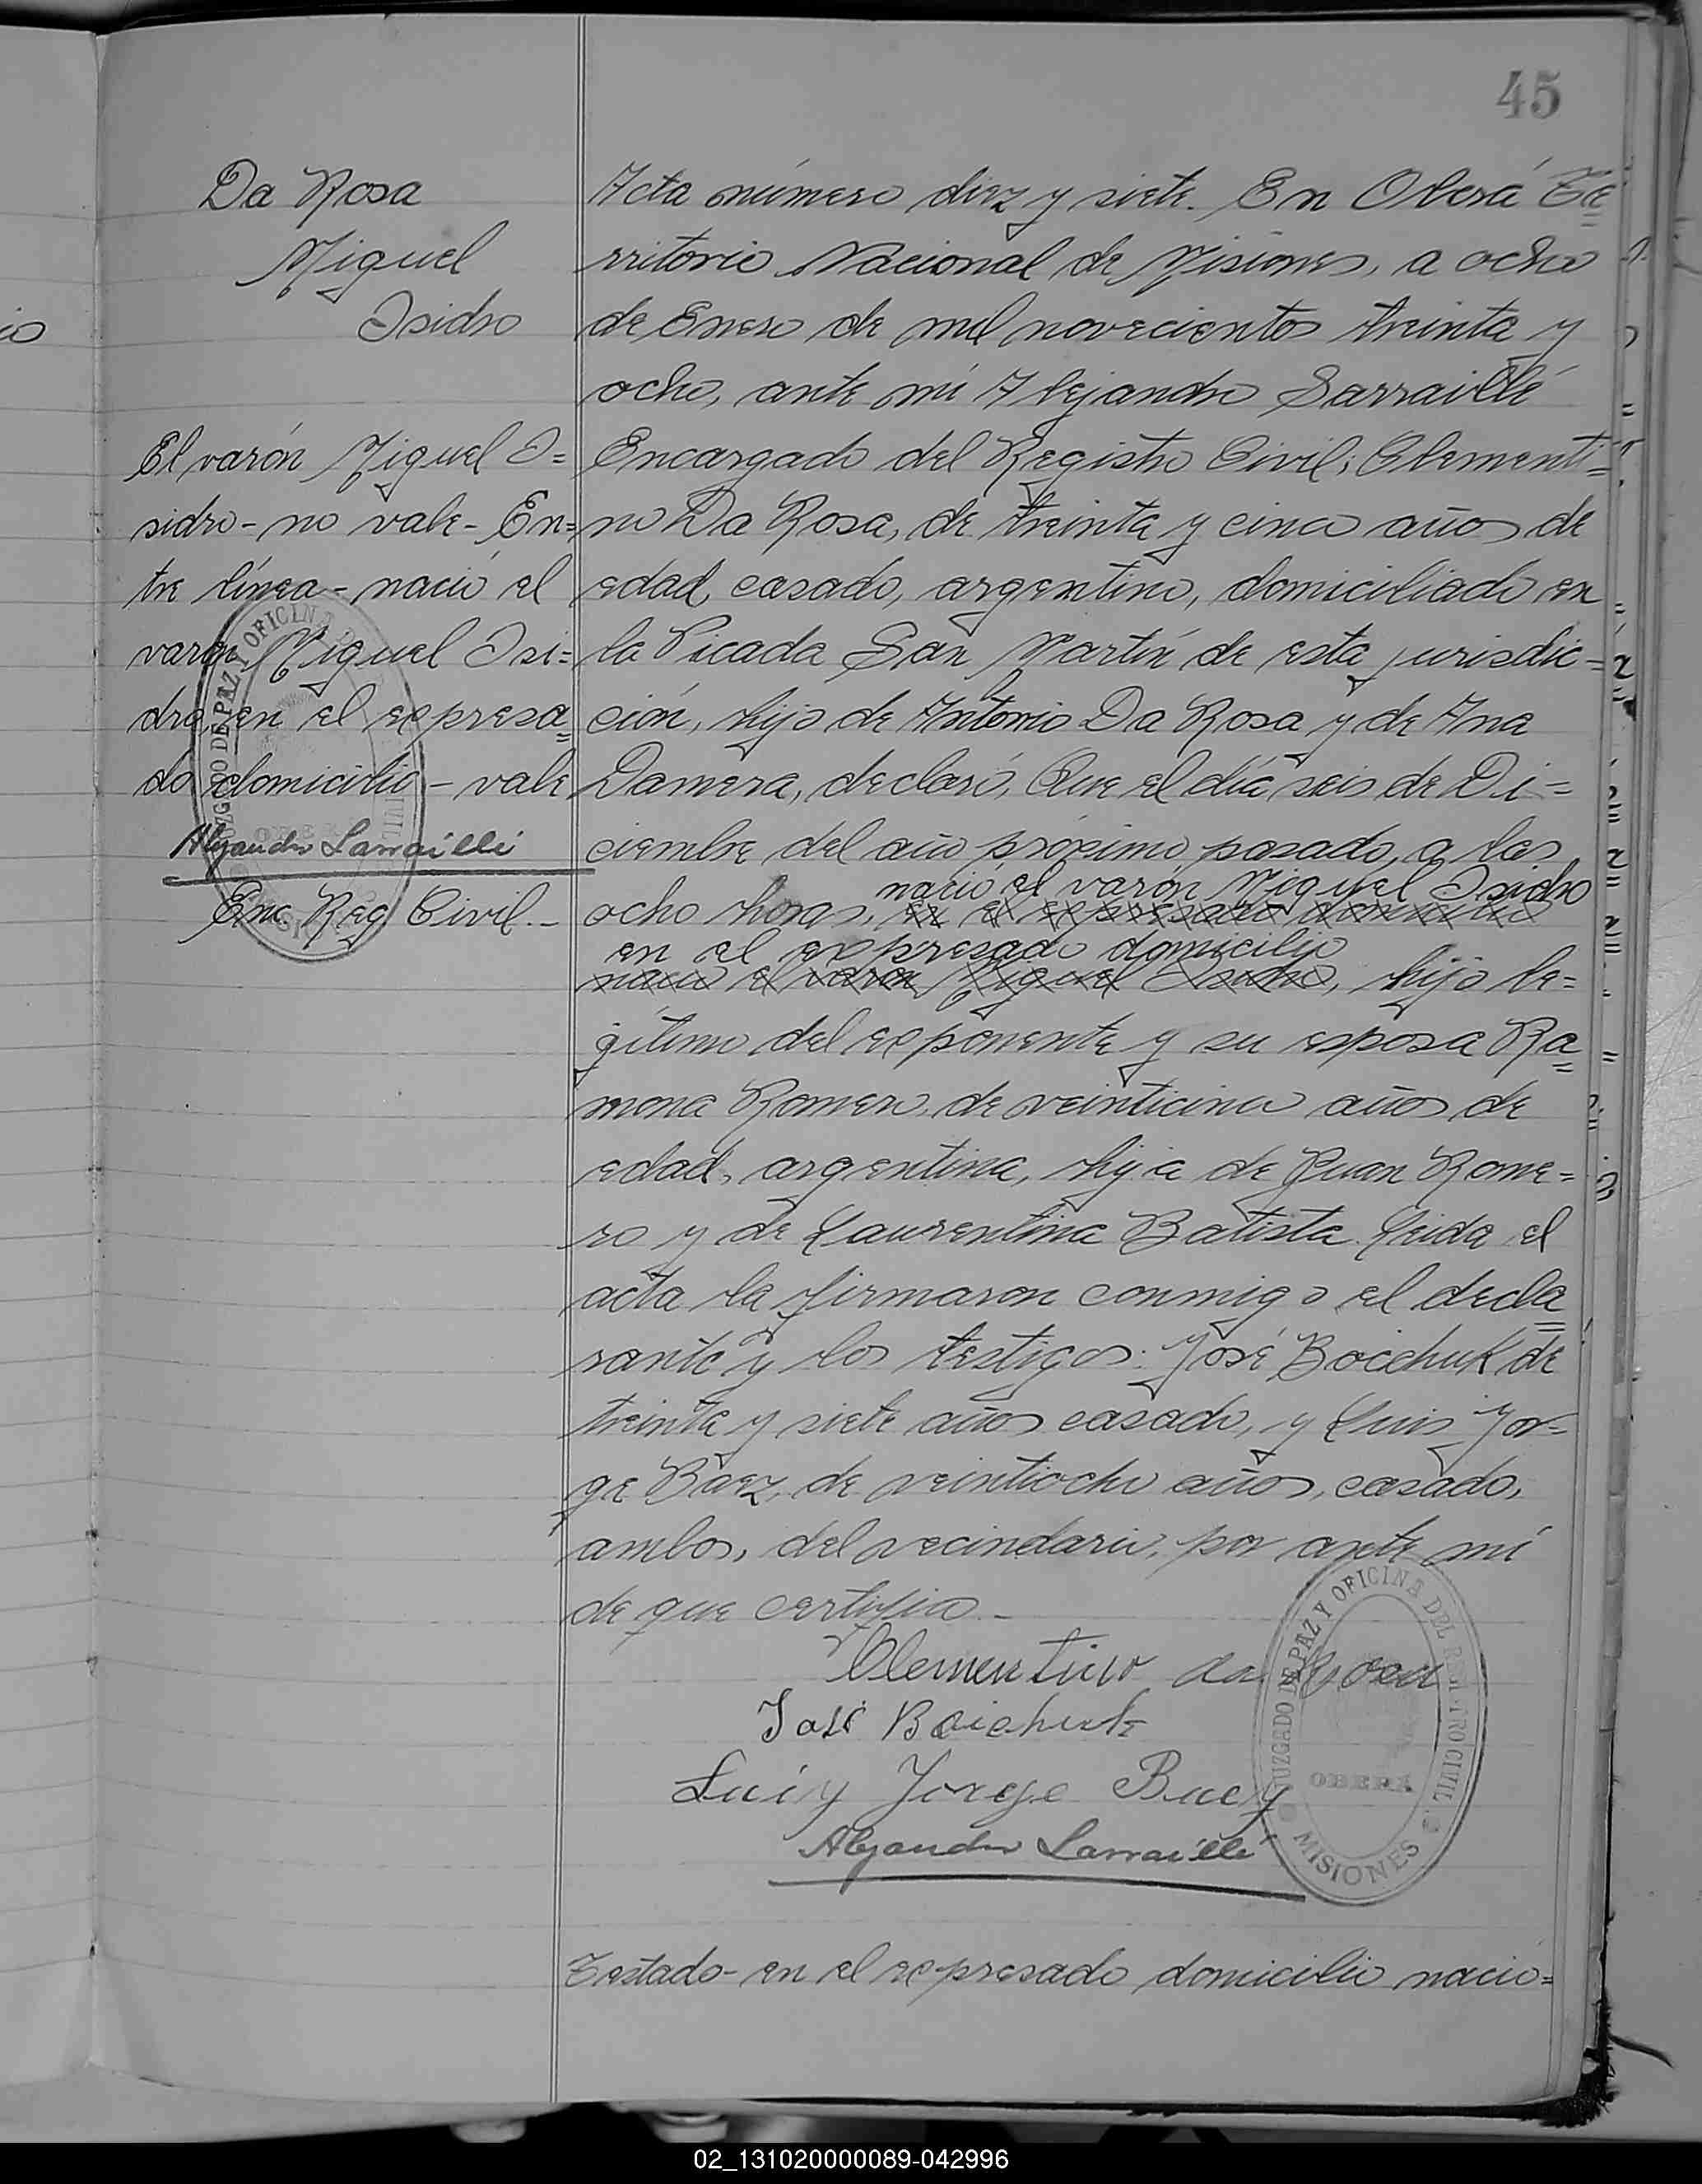 45
Da Rosa
Miguel
Isidro
El varón Miguel I=
sidro - no vale - En=
tre línea - nació el
varón Miguel Isi=
dro, en el expresa=
do domicilio - vale
Alejandro Sarraillé
Enc. Reg. Civil.-
Acta número diez y siete. En Oberá Te=
rritorio Nacional de Misiones, a ocho
de Enero de mil novecientos treinta y
ocho, ante mí Alejandro Sarraillé
Encargado del Registro Civil; Clementi=
no Da Rosa, de treinta y cinco años de
edad, casado, argentino, domiciliado en
la Picada San Martín de esta jurisdic=
ción, hijo de Antonio Da Rosa y de Ana
Damera, declaró, Que el día seis de Di=
ciembre del año próximo pasado, a las
nació el varón Miguel Isidro
ocho horas, en el expresado domicilio
en el expresado domicilio
nació el varón Miguel Isidro, hijo le=
gítimo del exponente y su esposa Ra=
mona Romero, de veinticinco años de
edad, argentina, hija de Juan Rome=
ro y de Laurentina Batista. Leida el
acta la firmaron conmigo el decla=
rante y los testigos: José Boichuk de
treinta y siete años casado, y Luis Jor=
ge Baez, de veintiocho años, casado,
ambos, del vecindario, por ante mí
de que certifico.-
Clementino da Rosa
José Boichuk
Luiy Jorge Baey
Alejandro Sarraillé
JUZGADO DE PAZ Y OFICINA DEL REGISTRO CIVIL
OBERÁ
MISIONES
Testado - en el expresado domicilio nació=
02_131020000089-042996